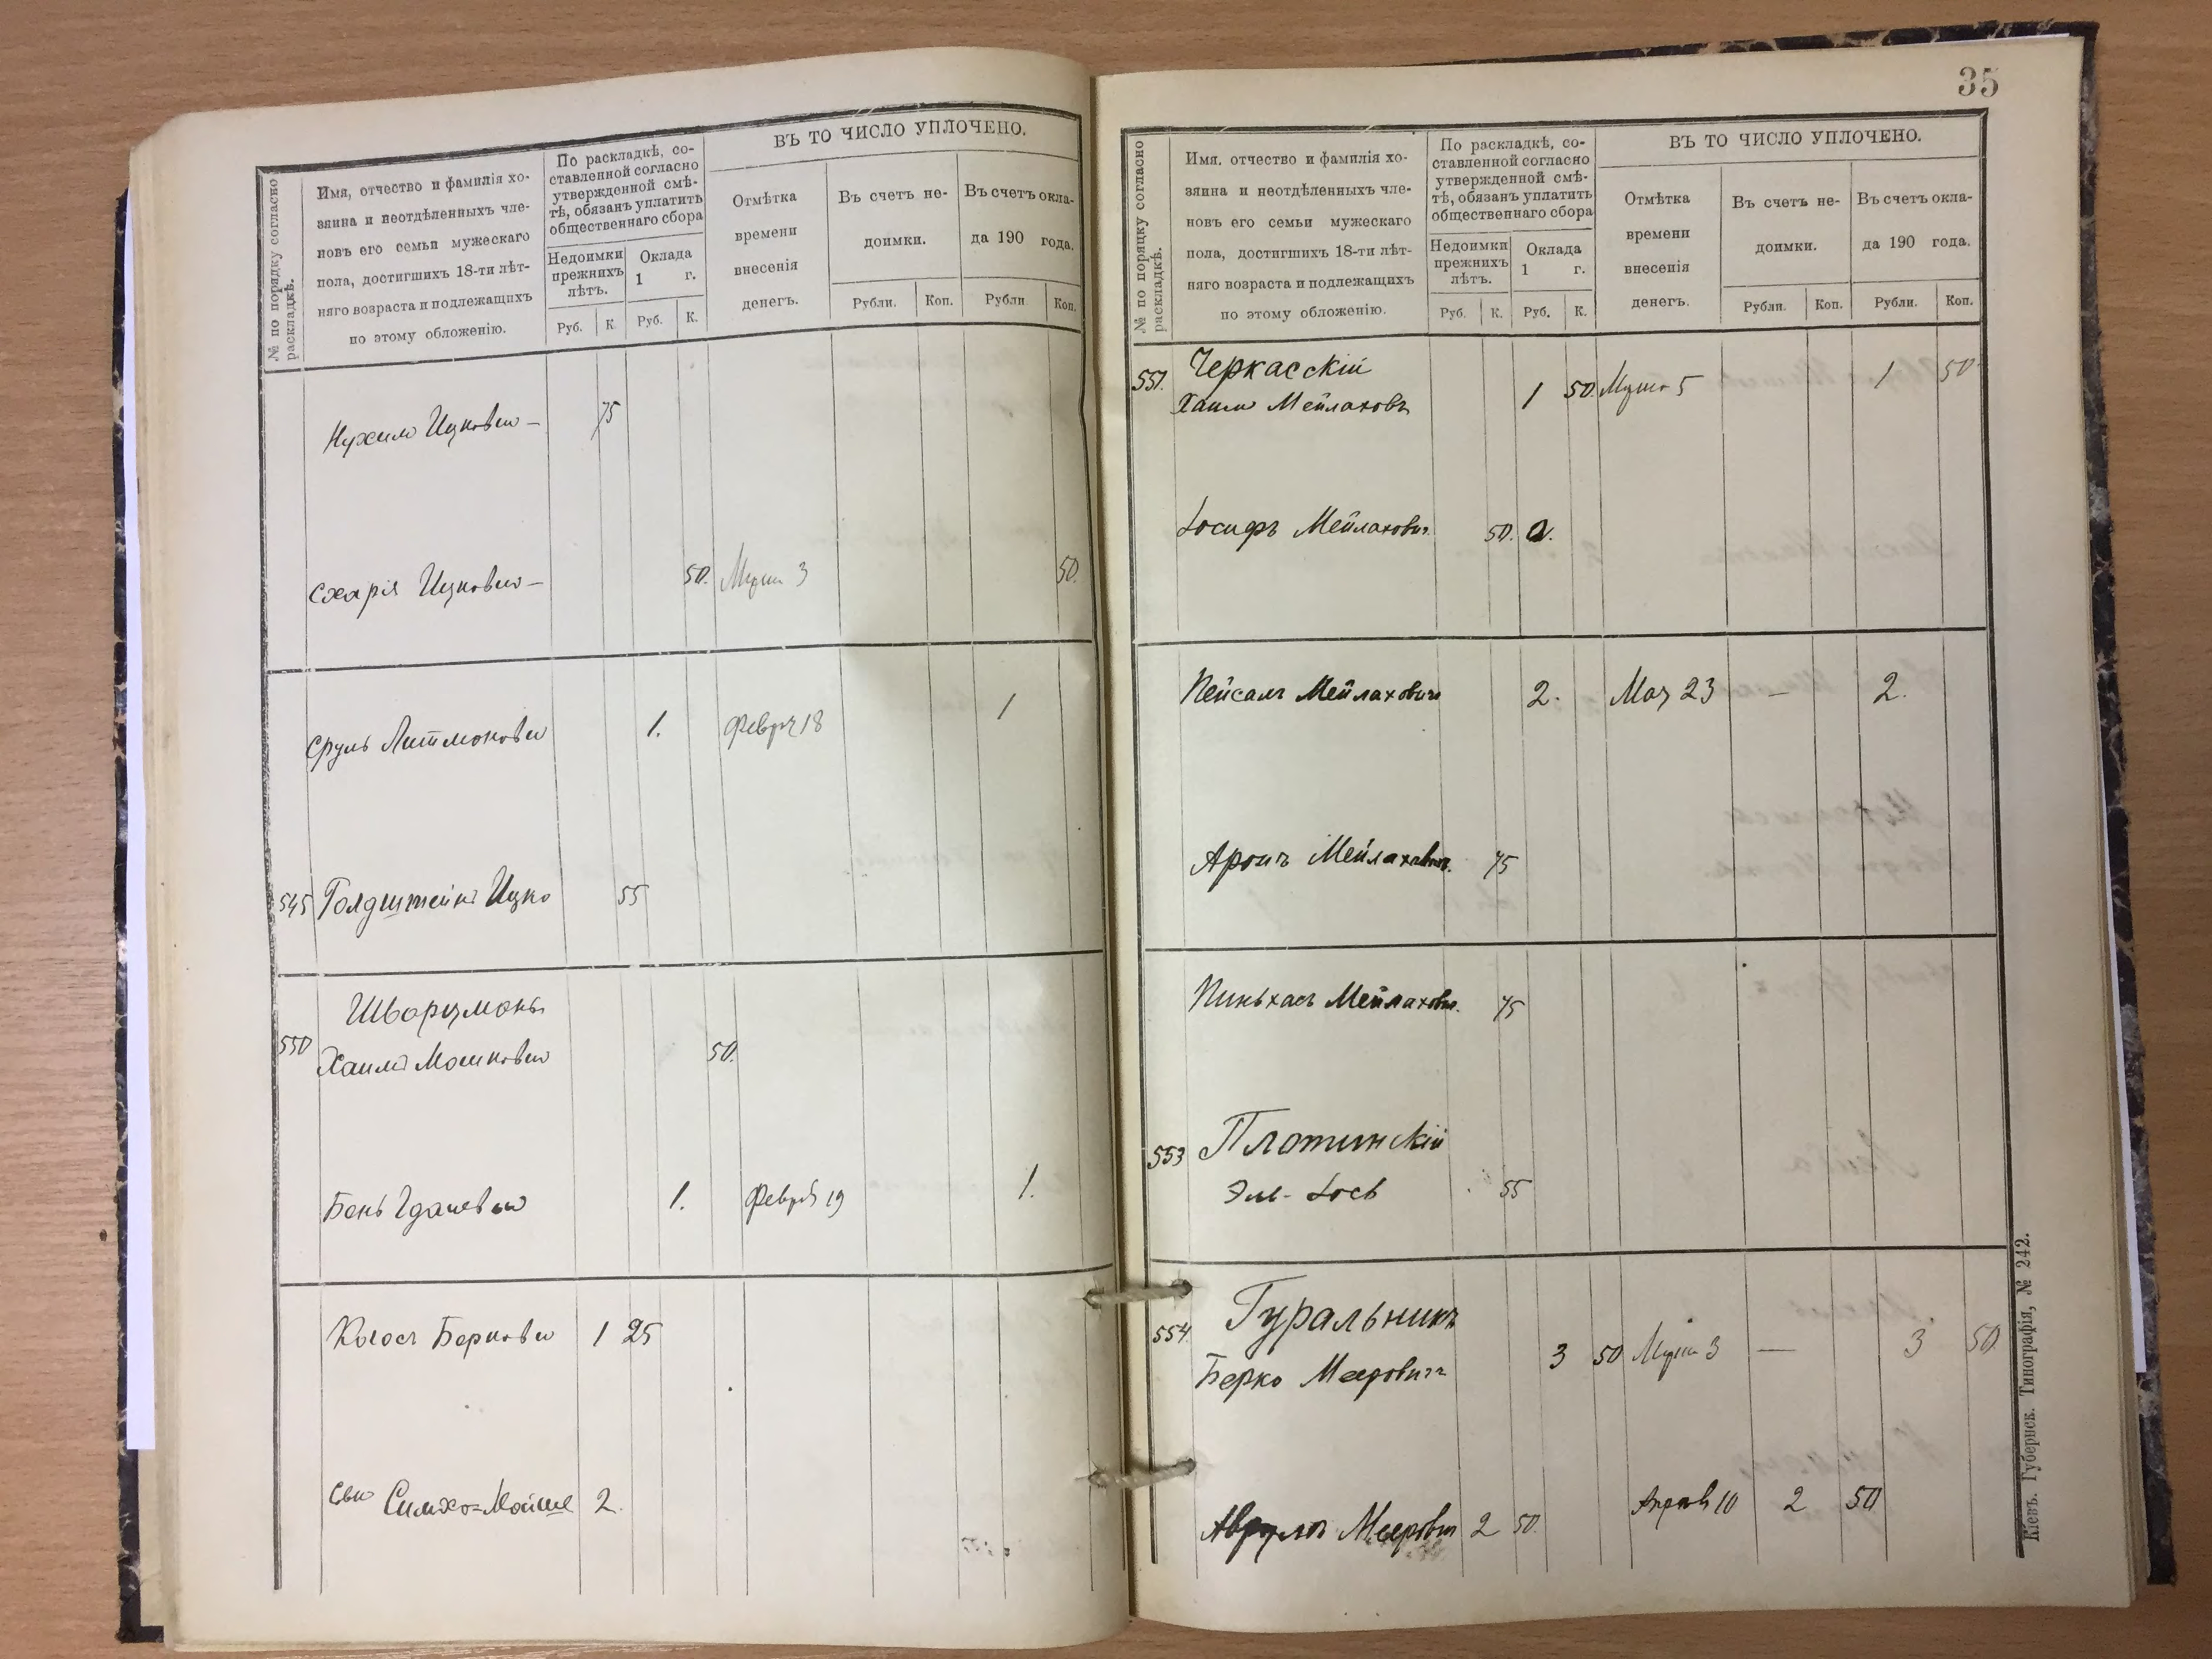 № по порядку согласно раскладкѣ.
Имя, отчество и фамилія хо-
зяина и неотдѣленныхъ чле-
новъ его семьи мужескаго
пола, достигшихъ 18-ти лѣт-
няго возраста и подлежащихъ
по этому обложенію.
По раскладкѣ, со-
ставленной согласно
утвержденной смѣ-
тѣ, обязанъ уплатить
общественнаго сбора
Недоимки
прежнихъ
лѣтъ.
Оклада
1 г.
Руб. К. Руб. К.
ВЪ ТО ЧИСЛО УПЛОЧЕНО.
Отмѣтка
времени
внесенія
денегъ.
Въ счетъ не-
доимки.
Рубли. Коп.
Въ счетъ окла-
да 190 года.
Рубли Коп.
Нухимъ Ицковъ — 75
Схарія Ицковъ — 50. 3 50.
Сруль 1. 18 1
545 Голдштейнъ Ицко 55
Шварцманъ
550 Хаимъ Мошковъ 50.
Бень 1. 19 1.
Берковъ 1 25
Симхо-Мойше 2.
35
№ по порядку согласно раскладкѣ.
Имя. отчество и фамилія хо-
зяина и неотдѣленныхъ чле-
новъ его семьи мужескаго
пола, достигшихъ 18-ти лѣт-
няго возраста и подлежащихъ
по этому обложенію.
По раскладкѣ, со-
ставленной согласно
утвержденной смѣ-
тѣ, обязанъ уплатить
общественнаго сбора
Недоимки
прежнихъ
лѣтъ.
Оклада
1 г.
Руб. К. Руб. К.
ВЪ ТО ЧИСЛО УПЛОЧЕНО.
Отмѣтка
времени
внесенія
денегъ.
Въ счетъ не-
доимки.
Рубли. Коп.
Въ счетъ окла-
да 190 года.
Рубли. Коп.
551. Черкасскій
Хаимъ Мейлаховъ 1 50. 5 1 50
Іосифъ Мейлахович. 50.
Пейсахъ Мейлаховичъ 2. 23 — 2.
Аронъ Мейлахович. 75
Пиньхасъ Мейлахов. 75
553 Плотинскій
55
554. Гуральникъ
Берко Мееровичъ 3 50 3 — 3 50
Меерович 2 50. 10 2 50
Кіевъ. Губернск. Типографія, № 242.